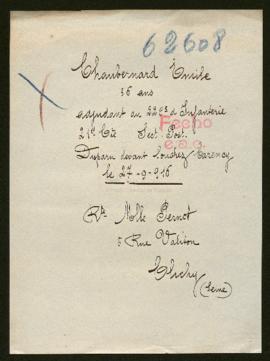 62608
Chaubernard Emile
36 ans
adjudant au 220e d'Infanterie
21e Cie Sect. Post.
Fecho
e.a.o.
Disparu devant Souchez-Carency
le 27-9-915
Rte Melle Pernot
5 Rue Valiton
Clichy
(Seine)